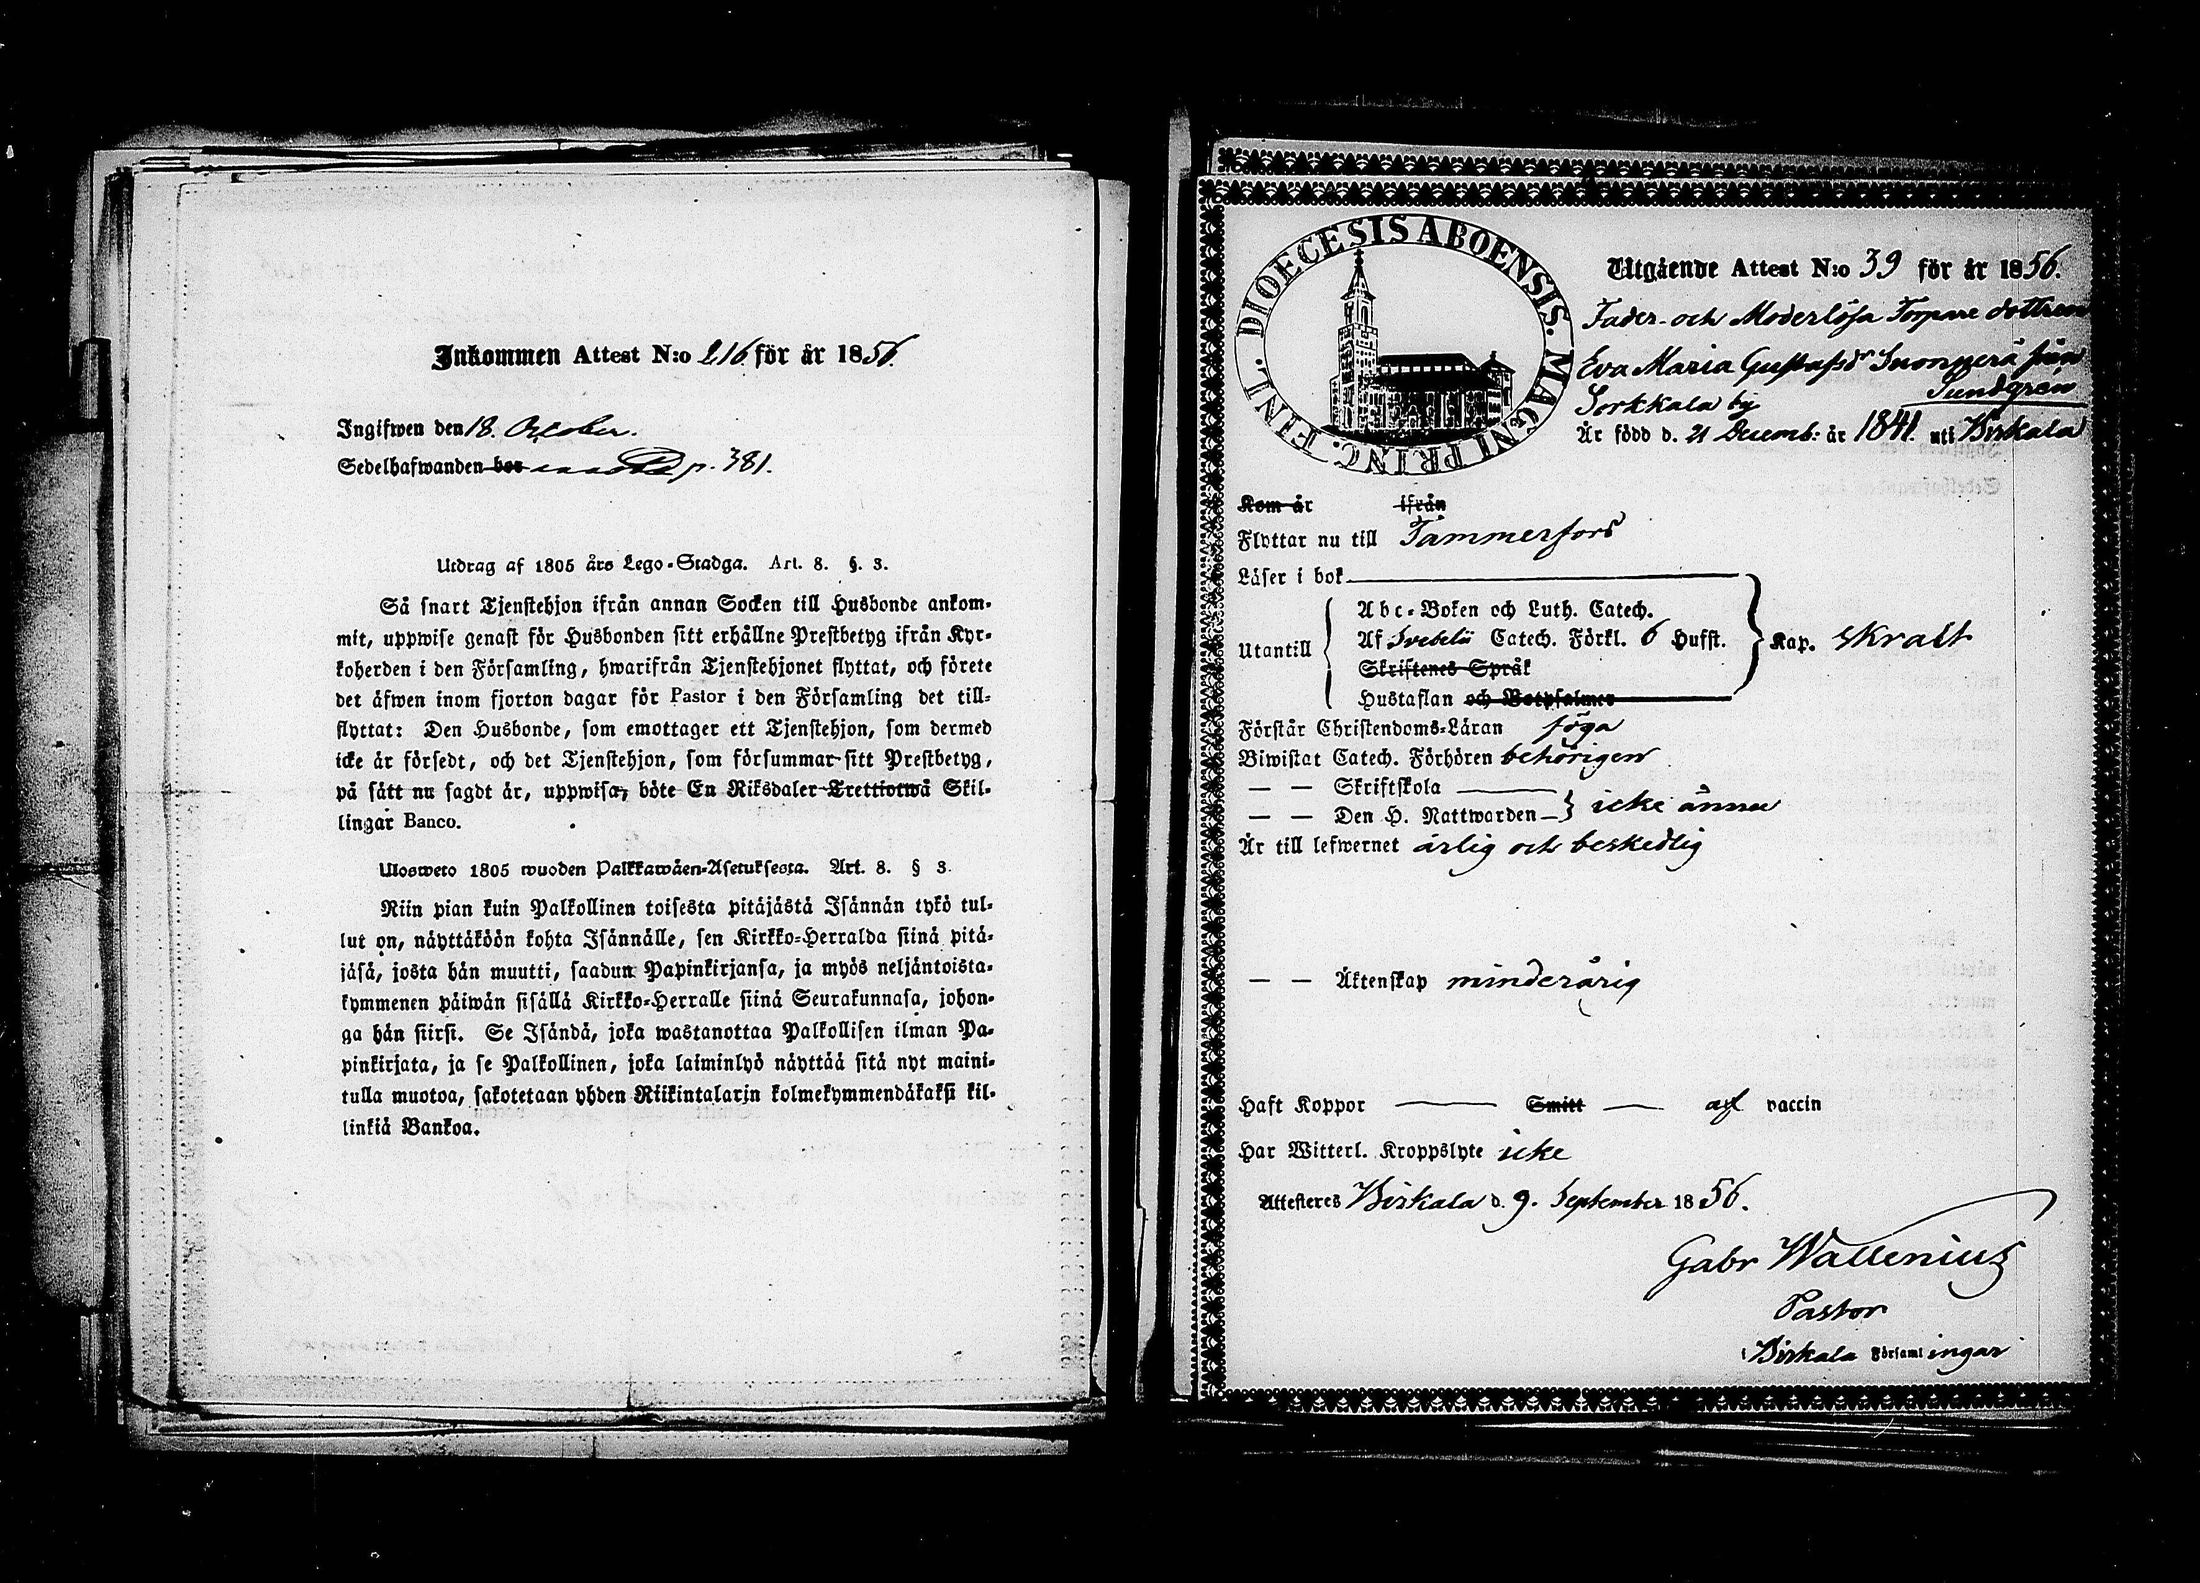 Inkommen Attest N:o 216 för år 1856.
Ingifwen den 18. October.
Sedelhafwanden bor p. 381.
Utdrag af 1805 års Lego-Stadga. Art. 8. §. 3.
Så snart Tjenstehjon ifrån annan Socken till Husbonde ankom-
mit, uppwise genast för Husbonden sitt erhållne Prestbetyg ifrån Kyr-
koherden i den Församling, hwarifrån Tjenstehjonet flyttat, och förete
det äfwen inom fjorton dagar för Pastor i den Församling det till-
flyttat: Den Husbonde, som emottager ett Tjenstehjon, som dermed
icke är försedt, och det Tjenstehjon, som försummar sitt Prestbetyg,
på sätt nu sagdt är, uppwisa, böte En Riksdaler Trettiotwå Skil-
lingar Banco.
Ulosweto 1805 wuoden Palkkawäen-Asetuksesta. Art. 8. § 3.
Niin pian kuin Palkollinen toisesta pitäjästä Isännän tykö tul-
lut on, näyttäköön kohta Isännälle, sen Kirkko-Herralda siinä pitä-
jäsä, josta hän muutti, saadun Papinkirjansa, ja myös neljäntoista-
kymmenen päiwän sisällä Kirkko-Herralle siinä Seurakunnasa, johon-
ga hän siirsi. Se Isändä, joka wastanottaa Palkollisen ilman Pa-
pinkirjata, ja se Palkollinen, joka laiminlyö näyttää sitä nyt maini-
tulla muotoa, sakotetaan yhden Riikintalarin kolmekymmendäkaksi kil-
linkiä Bankoa.
DIOECESIS ABOENSIS. MAGNI PRINC. FINL.
Utgående Attest N:o 39 för år 1856.
Fader- och Moderlösa Torpare dottren
Eva Maria Gustafsdr från
Sundgren
Sorkkala by
Är född d. 21 Decemb: år 1841. uti Birkala
Kom år ifrån
Flyttar nu till Tammerfors
Läser i bok
Utantill
Abc-Boken och Luth. Catech.
Af Svebelii Catech. Förkl. 6 Hufst.
Skriftenes Språk
Hustaflan och Botpsalmer
Kap. skralt
Förstår Christendoms-Läran föga
Biwistat Catech. Förhören behörigen
— — Skriftskola
— — Den H. Nattwarden
icke ännu
Är till lefwernet ärlig och beskedlig
— — Äktenskap minderårig
Haft Koppor Smitt af vaccin
Har Witterl. Kroppslyte icke
Attesteres Birkala d. 9. September 1856.
Gabr Wallenius
Pastor
i Birkala Församlingar